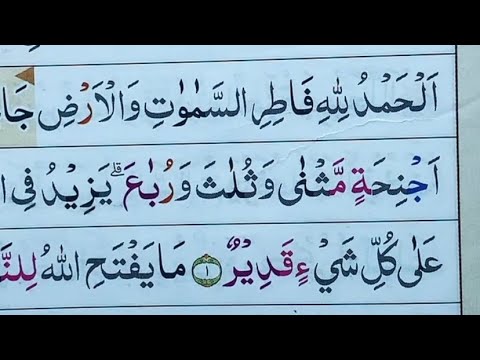 اَلۡحَمۡدُ لِلّٰهِ فَاطِرِ السَّمٰوٰتِ وَالۡاَرۡضِ جَا
اَجۡنِحَةٍ مَّثۡنٰى وَثُلٰثَ وَرُبٰعَ ؕ يَزِيۡدُ فِى ا
عَلٰى كُلِّ شَىۡءٍ قَدِيۡرٌ ۱ مَا يَفۡتَحِ اللّٰهُ لِلنَّ